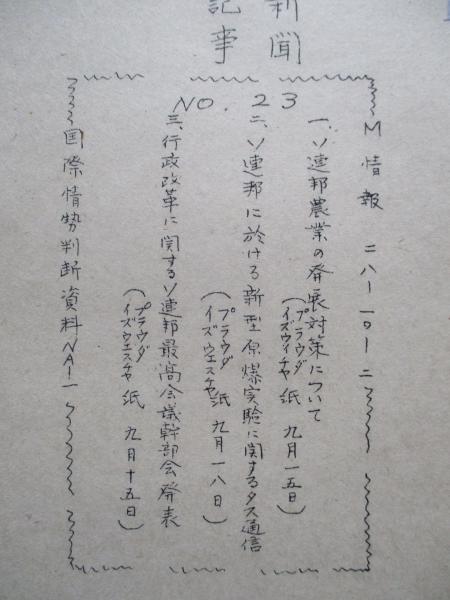 新聞
記事
NO.23
M情報 二八ー一〇ー一二
一、ソ連邦農業の発展対策について
(プラウダ
イズウィチャ 紙 九月一五日)
二、ソ連邦に於ける新型原爆実験に関するタス通信
(プラウダ
イズウエスチャ 紙 九月一八日)
三、行政改革に関するソ連邦最高会議幹部会発表
(プラウダ
イズウエスチャ 紙 九月十五日)
国際情勢判断資料NA